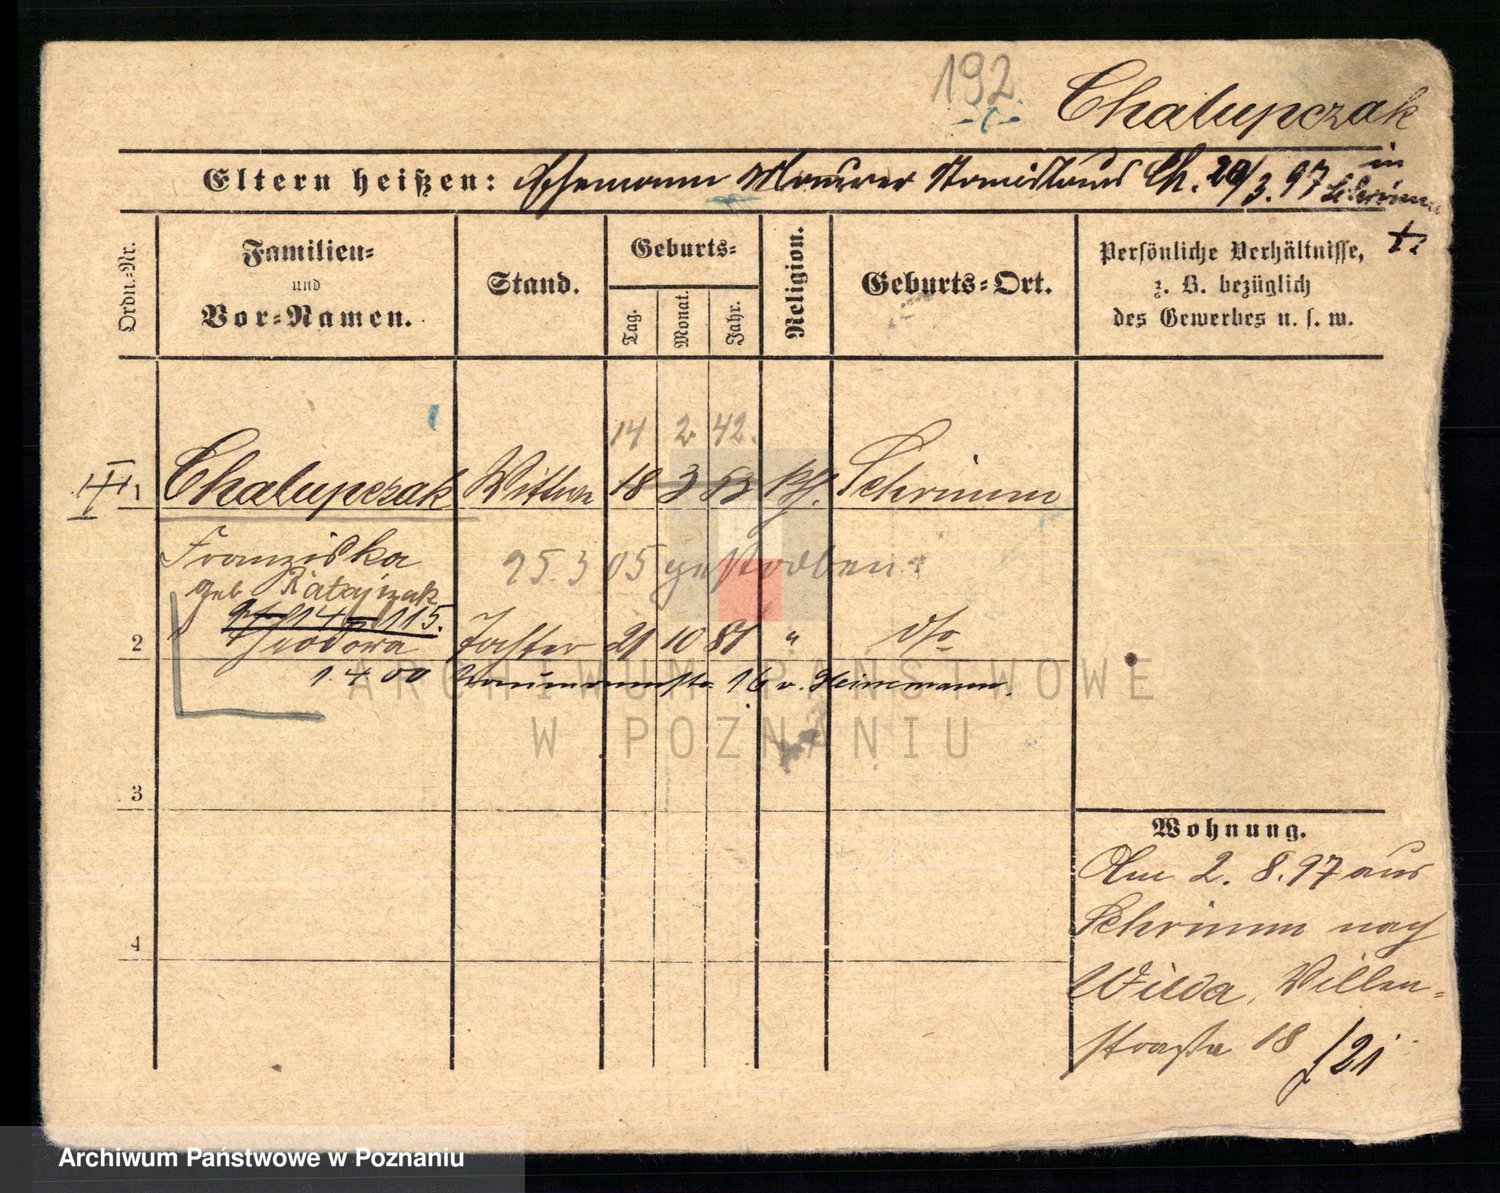 192
Chalupczak
Eltern heißen: Ehemann Maurer Stanislaus Ch. 20/3.97 in Schrimm †.
Ordn.-Nr.
Familien- und Vor-Namen.
Stand.
Geburts-
Tag.
Monat.
Jahr.
Religion.
Geburts-Ort.
Persönliche Verhältnisse,
z. B. bezüglich
des Gewerbes u. s. w.
14 2 42.
1 Chalupczak Wittwe 18 3 53 kth. Schrimm
Franziska
25.3 05 gestorben
geb Ratajczak
2 " Theodora Tochter 21 10 81 " dto
1 4 00 16 v. Heinemann.
3
4
Wohnung.
Am 2. 8. 97 aus
Schrimm nach
Wilda, Villen-
straße 18
ARCHIWUM PAŃSTWOWE
W POZNANIU
Archiwum Państwowe w Poznaniu